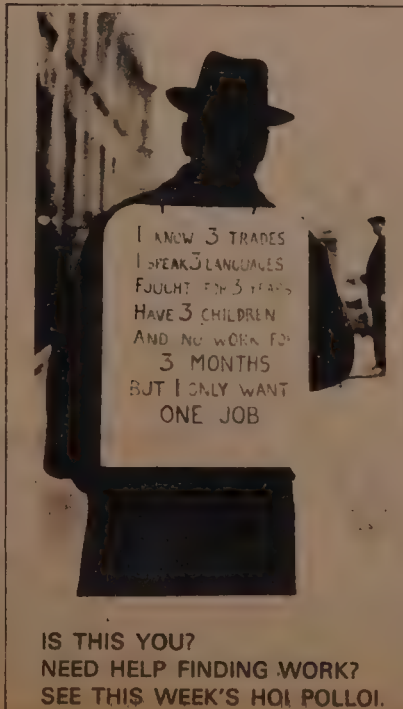 I KNOW 3 TRADES
I SPEAK 3 LANGUAGES
FOUGHT FOR 3 YEARS
HAVE 3 CHILDREN
AND NO WORK FOR
3 MONTHS
BUT I ONLY WANT
ONE JOB
IS THIS YOU?
NEED HELP FINDING WORK?
SEE THIS WEEK'S HOI POLLOI.